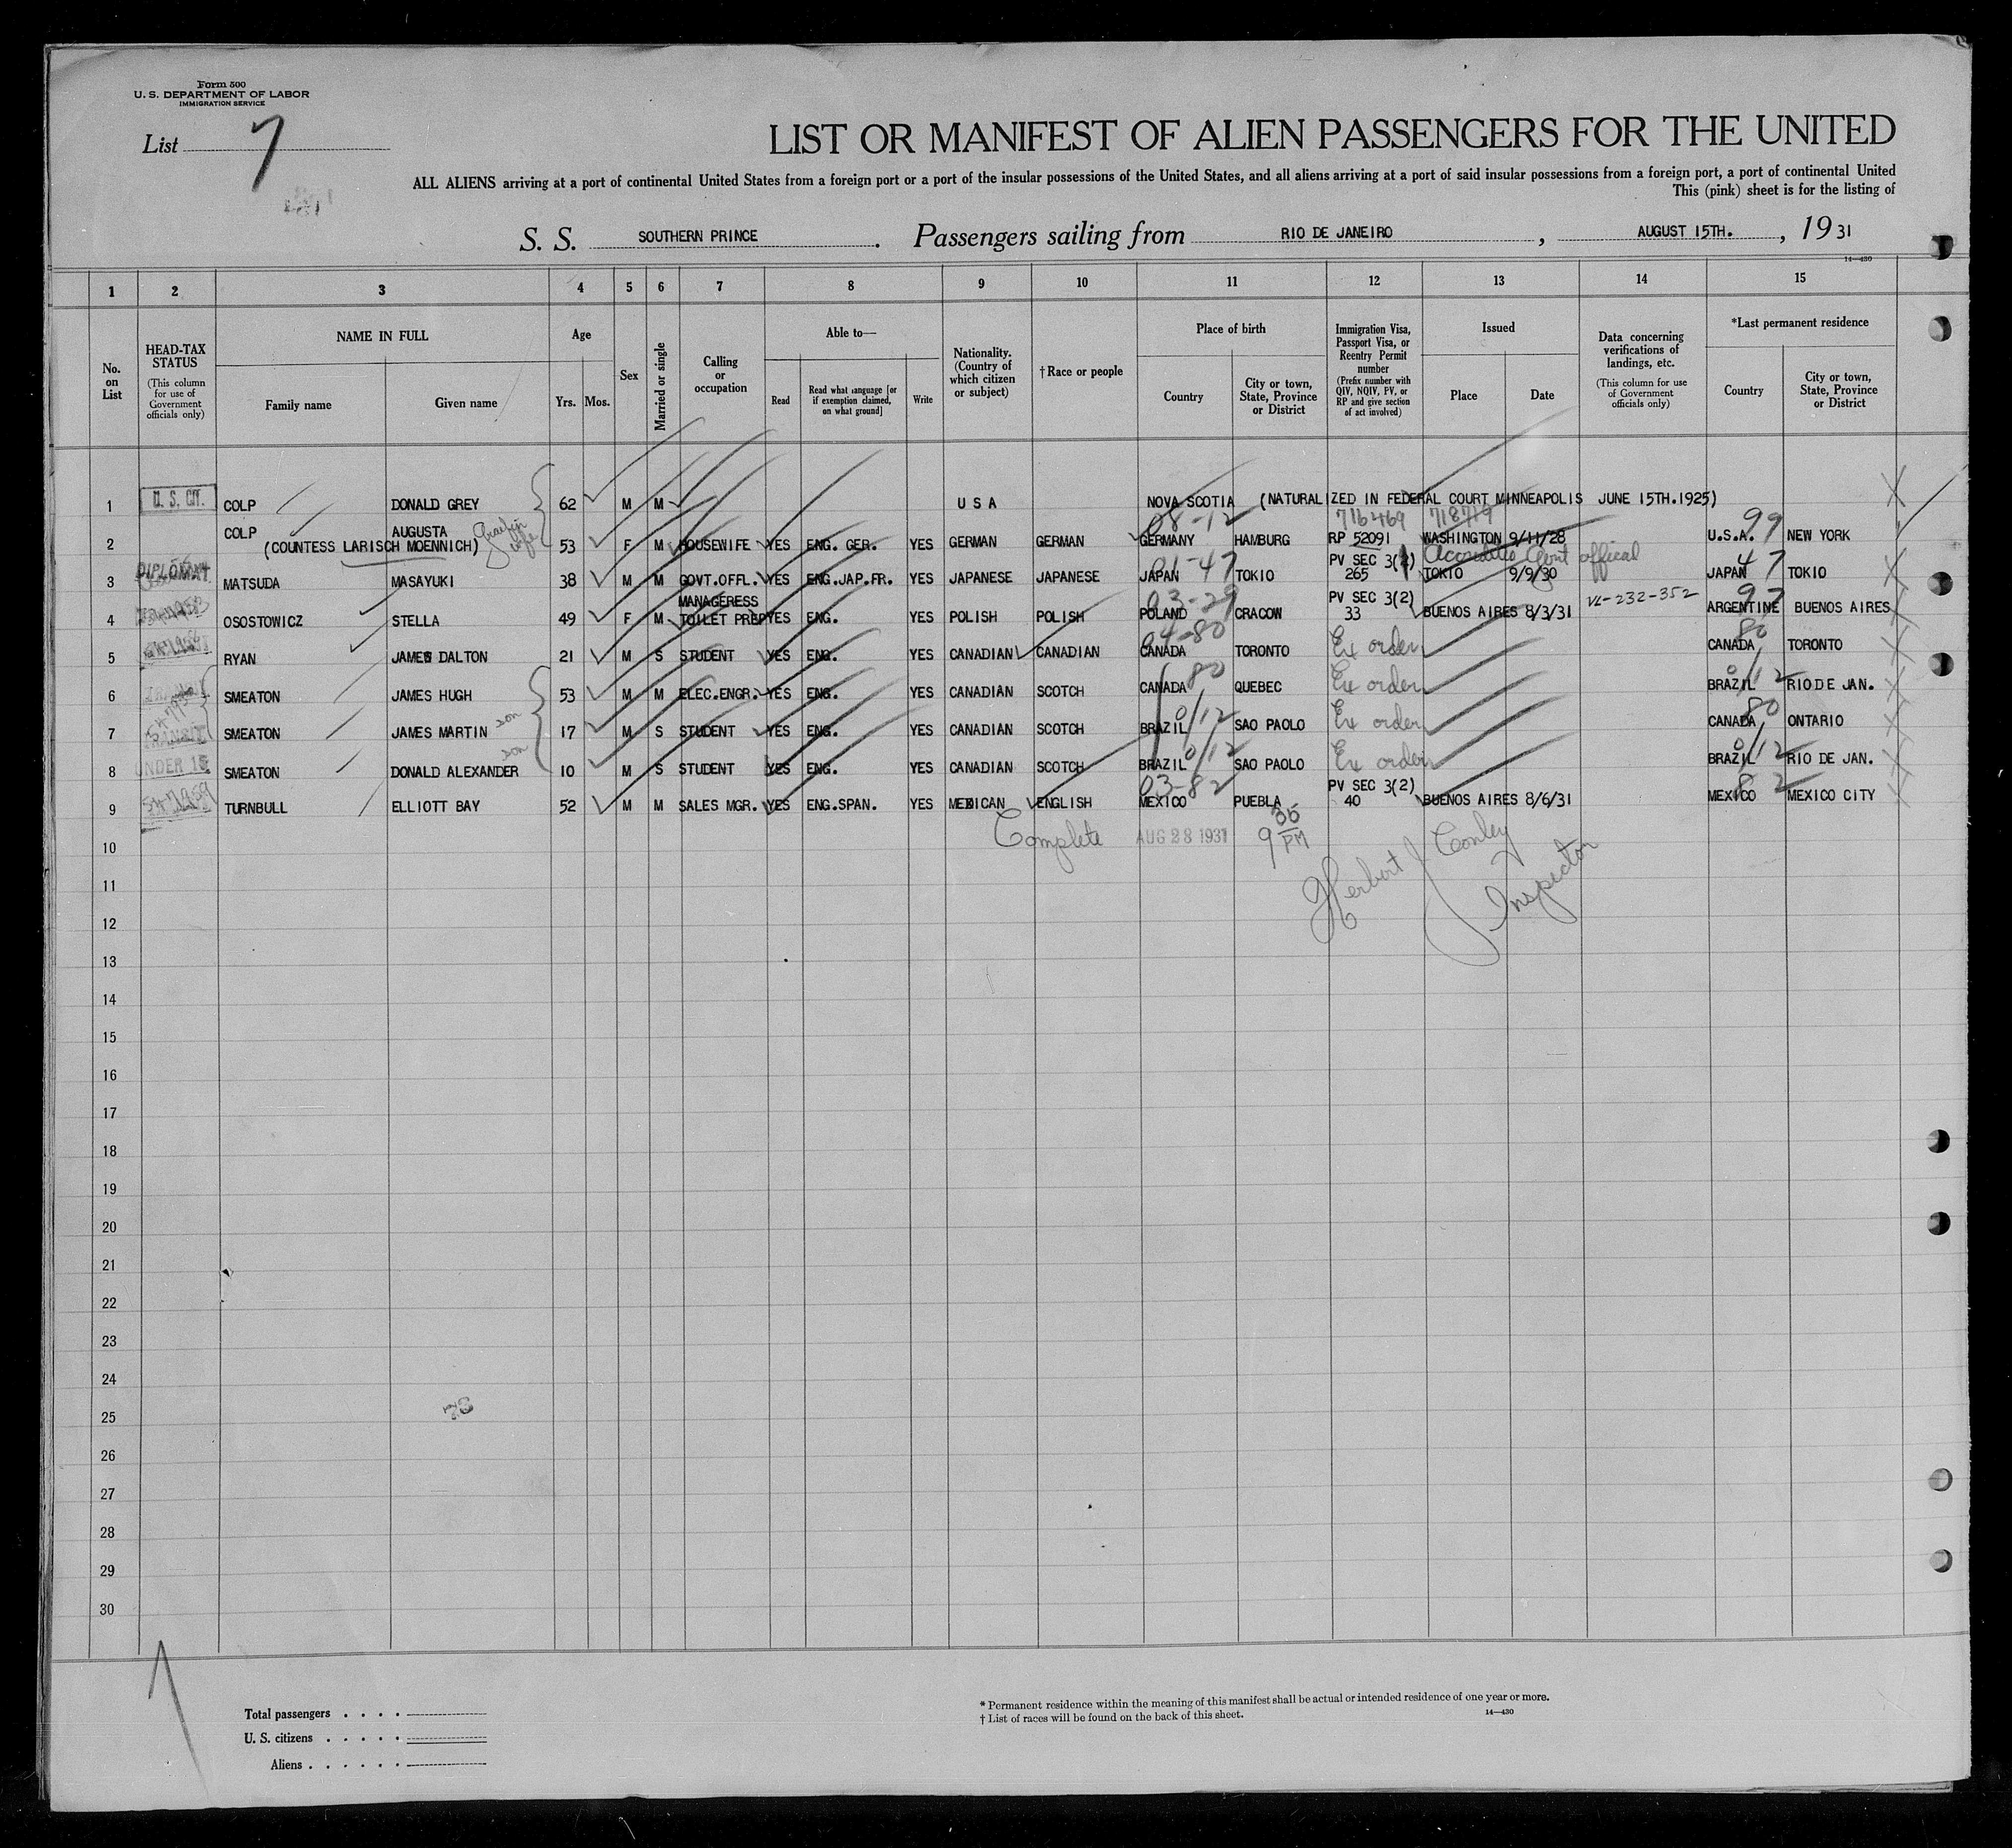 Form 500
U. S. DEPARTMENT OF LABOR
IMMIGRATION SERVICE
List 7
LIST OR MANIFEST OF ALIEN PASSENGERS FOR THE UNITED
ALL ALIENS arriving at a port of continental United States from a foreign port or a port of the insular possessions of the United States, and all aliens arriving at a port of said insular possessions from a foreign port, a port of continental United
This (pink) sheet is for the listing of
S. S. SOUTHERN PRINCE. Passengers sailing from RIO DE JANEIRO, AUGUST 15TH., 1931
14—430
1 2 3 4 5 6 7 8 9 10 11 12 13 14 15
No. on List
HEAD-TAX STATUS (This column for use of Government officials only)
NAME IN FULL
Family name
Given name
Age
Yrs. Mos.
Sex
Married or single
Calling or occupation
Able to—
Read
Read what language [or if exemption claimed, on what ground]
Write
Nationality. (Country of which citizen or subject)
†Race or people
Place of birth
Country
City or town, State, Province or District
Immigration Visa, Passport Visa, or Reentry Permit number (Prefix number with QIV, NQIV, PV, or RP and give section of act involved)
Issued
Place
Date
Data concerning verifications of landings, etc. (This column for use of Government officials only)
*Last permanent residence
Country
City or town, State, Province or District
1 U. S. CIT. COLP DONALD GREY 62 M M U S A NOVA SCOTIA (NATURALIZED IN FEDERAL COURT MINNEAPOLIS JUNE 15TH.1925)
08-12 716469 718719 99
2 COLP (COUNTESS LARISCH MOENNICH) AUGUSTA wife 53 F M HOUSEWIFE YES ENG. GER. YES GERMAN GERMAN GERMANY HAMBURG RP 52091 WASHINGTON 9/11/28 U.S.A. NEW YORK
01-47 Accredited Govt offical 47
3 DIPLOMAT MATSUDA MASAYUKI 38 M M GOVT.OFFL. YES ENG.JAP.FR. YES JAPANESE JAPANESE JAPAN TOKIO PV SEC 3(1) 265 TOKIO 9/9/30 JAPAN TOKIO
03-29 VL-232-352 97
4 OSOSTOWICZ STELLA 49 F M MANAGERESS TOILET PREP YES ENG. YES POLISH POLISH POLAND CRACOW PV SEC 3(2) 33 BUENOS AIRES 8/3/31 ARGENTINE BUENOS AIRES
04-80 80
5 RYAN JAMES DALTON 21 M S STUDENT YES ENG. YES CANADIAN CANADIAN CANADA TORONTO Ex order CANADA TORONTO
80 0/12
6 SMEATON JAMES HUGH 53 M M ELEC.ENGR. YES ENG. YES CANADIAN SCOTCH CANADA QUEBEC Ex order BRAZIL RIO DE JAN.
0/12 80
7 TRANSIT SMEATON JAMES MARTIN son 17 M S STUDENT YES ENG. YES CANADIAN SCOTCH BRAZIL SAO PAOLO Ex order CANADA ONTARIO
0/12 0/12
8 UNDER 16 SMEATON DONALD ALEXANDER son 10 M S STUDENT YES ENG. YES CANADIAN SCOTCH BRAZIL SAO PAOLO Ex order BRAZIL RIO DE JAN.
03-82 82
9 TURNBULL ELLIOTT BAY 52 M M SALES MGR. YES ENG.SPAN. YES MEXICAN ENGLISH MEXICO PUEBLA PV SEC 3(2) 40 BUENOS AIRES 8/6/31 MEXICO MEXICO CITY
10 Complete AUG 28 1931 9 35 PM
Herbert J Conley
Inspector
11
12
13
14
15
16
17
18
19
20
21
22
23
24
25
78
26
27
28
29
30
Total passengers
U. S. citizens
Aliens
* Permanent residence within the meaning of this manifest shall be actual or intended residence of one year or more.
† List of races will be found on the back of this sheet.
14—430